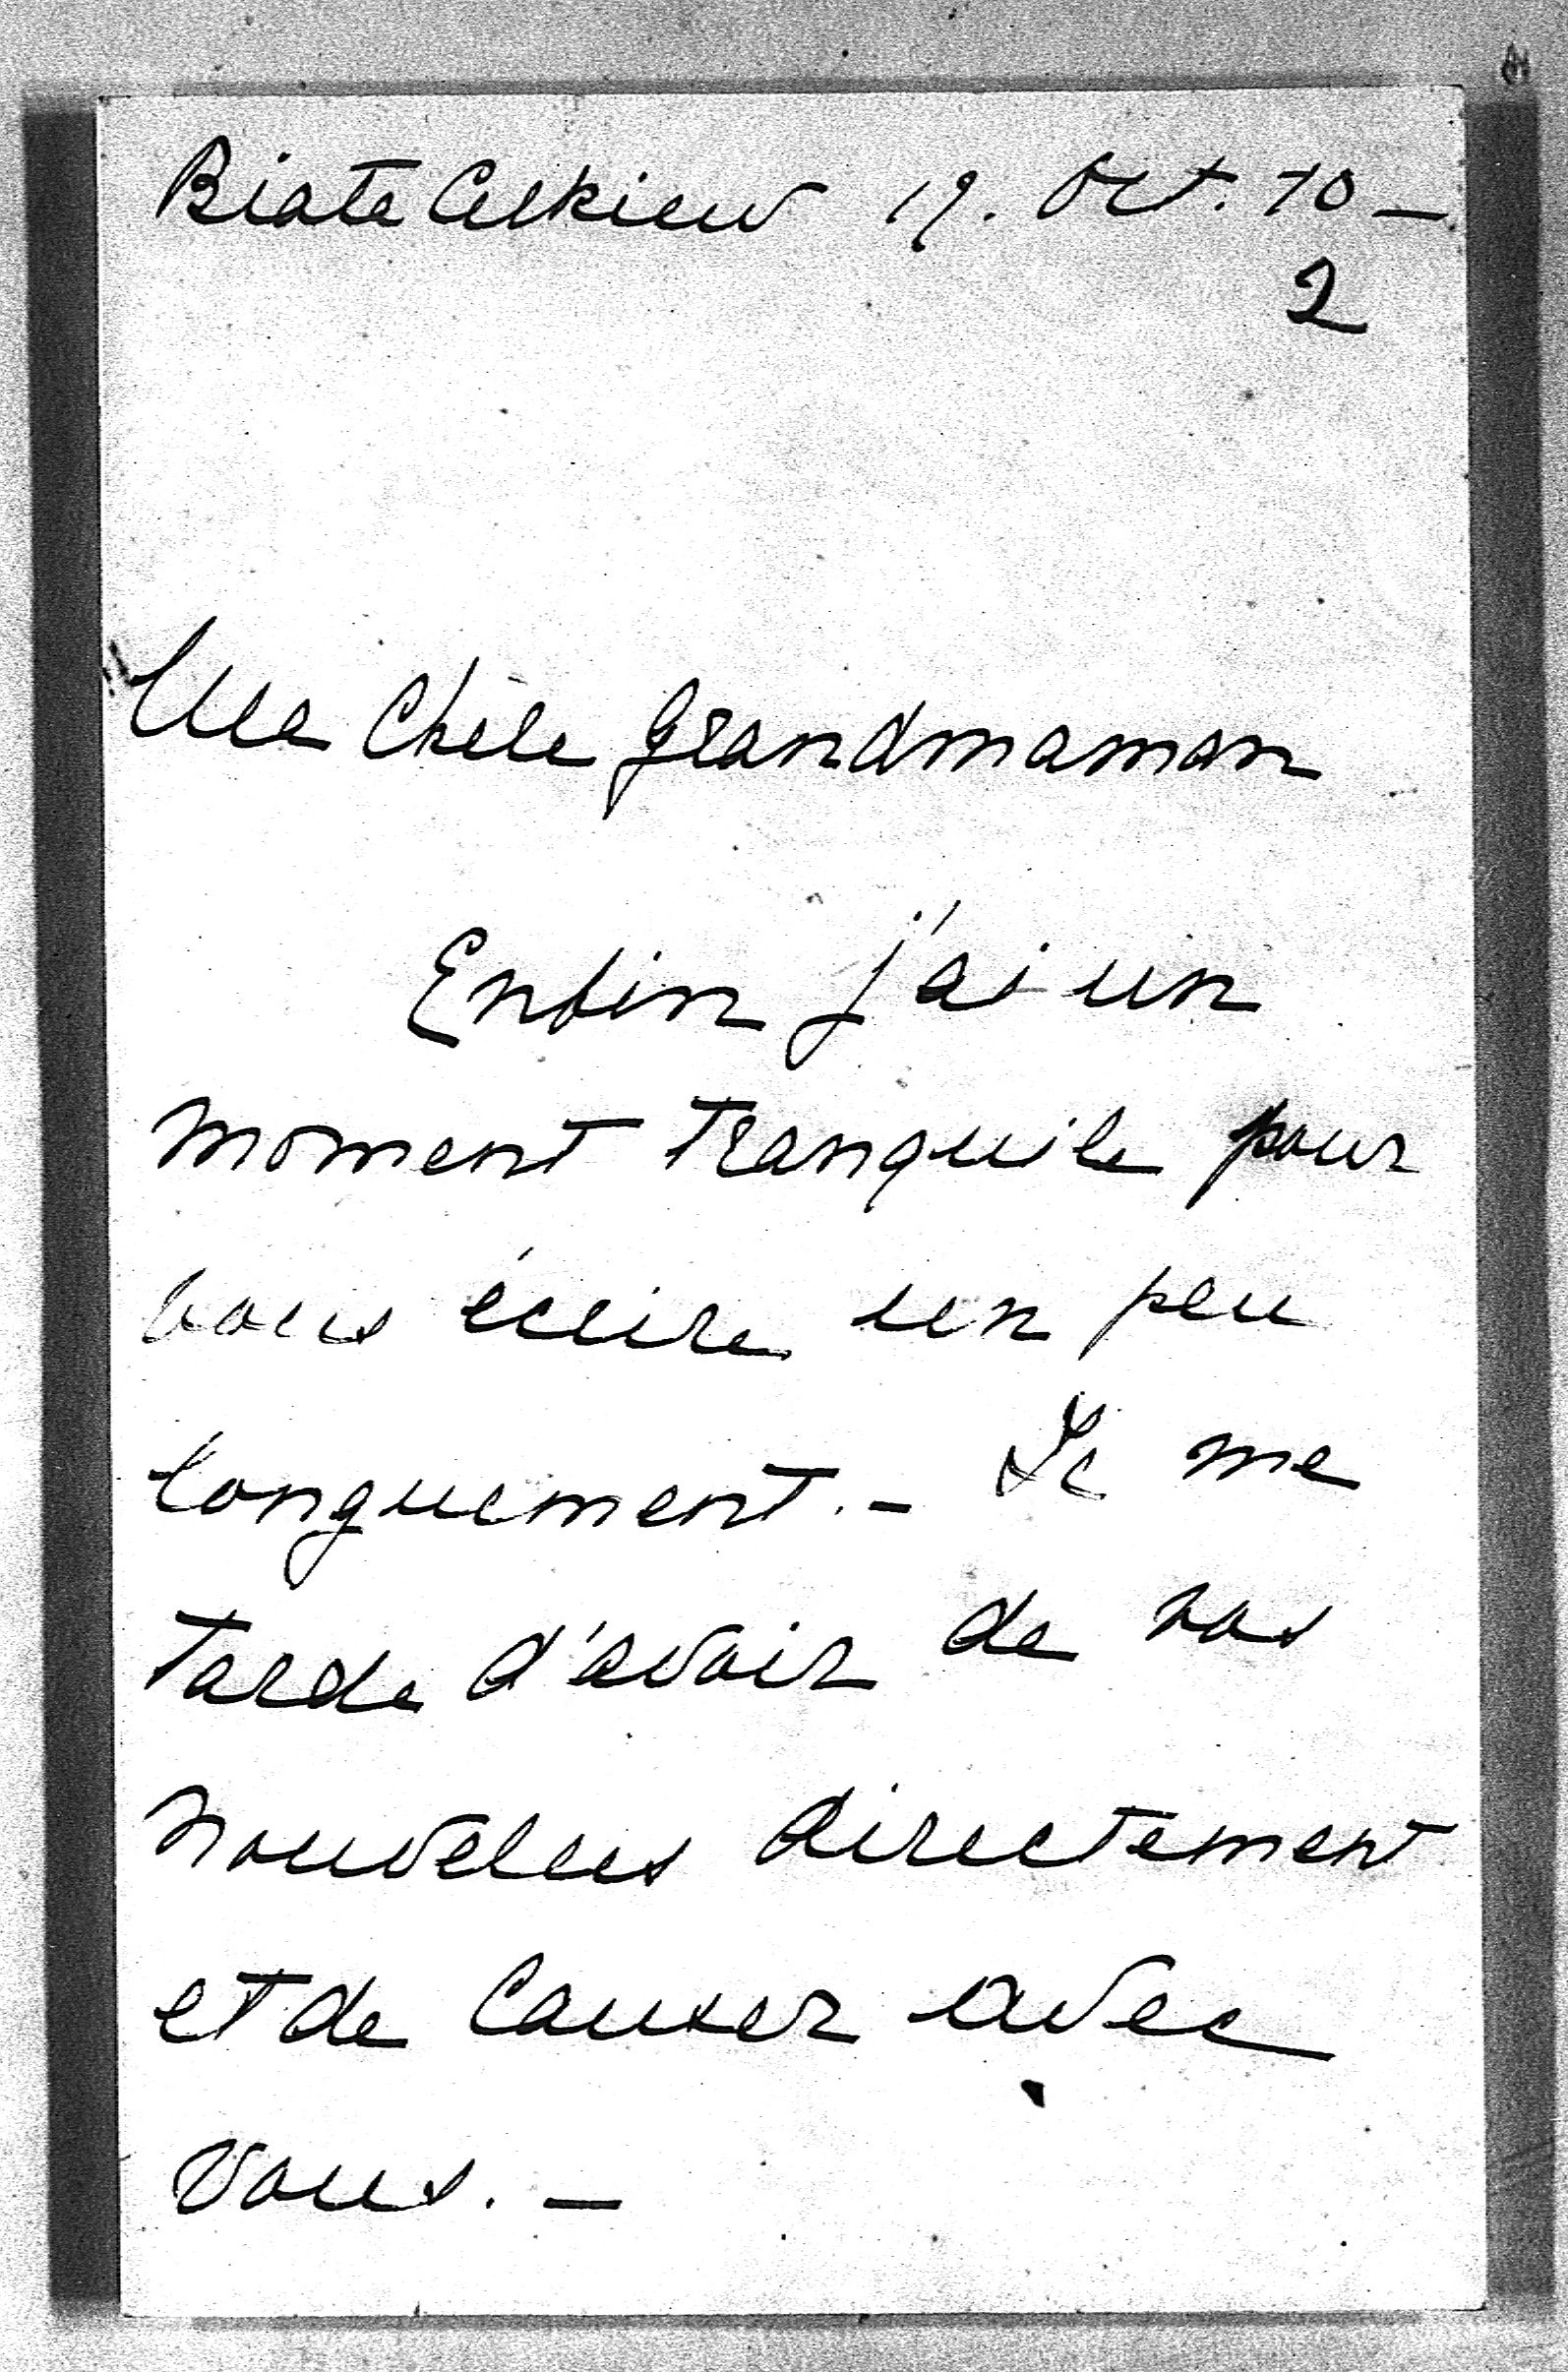 Biała Cerkiew 19. Oct. 10 —
2
Ma chère Grandmaman
Enfin j'ai un
moment tranquile pour
vous écrire un peu
longuement. — Il me
tarde d'avoir de vos
nouvelles directement
et de causer avec
vous. —